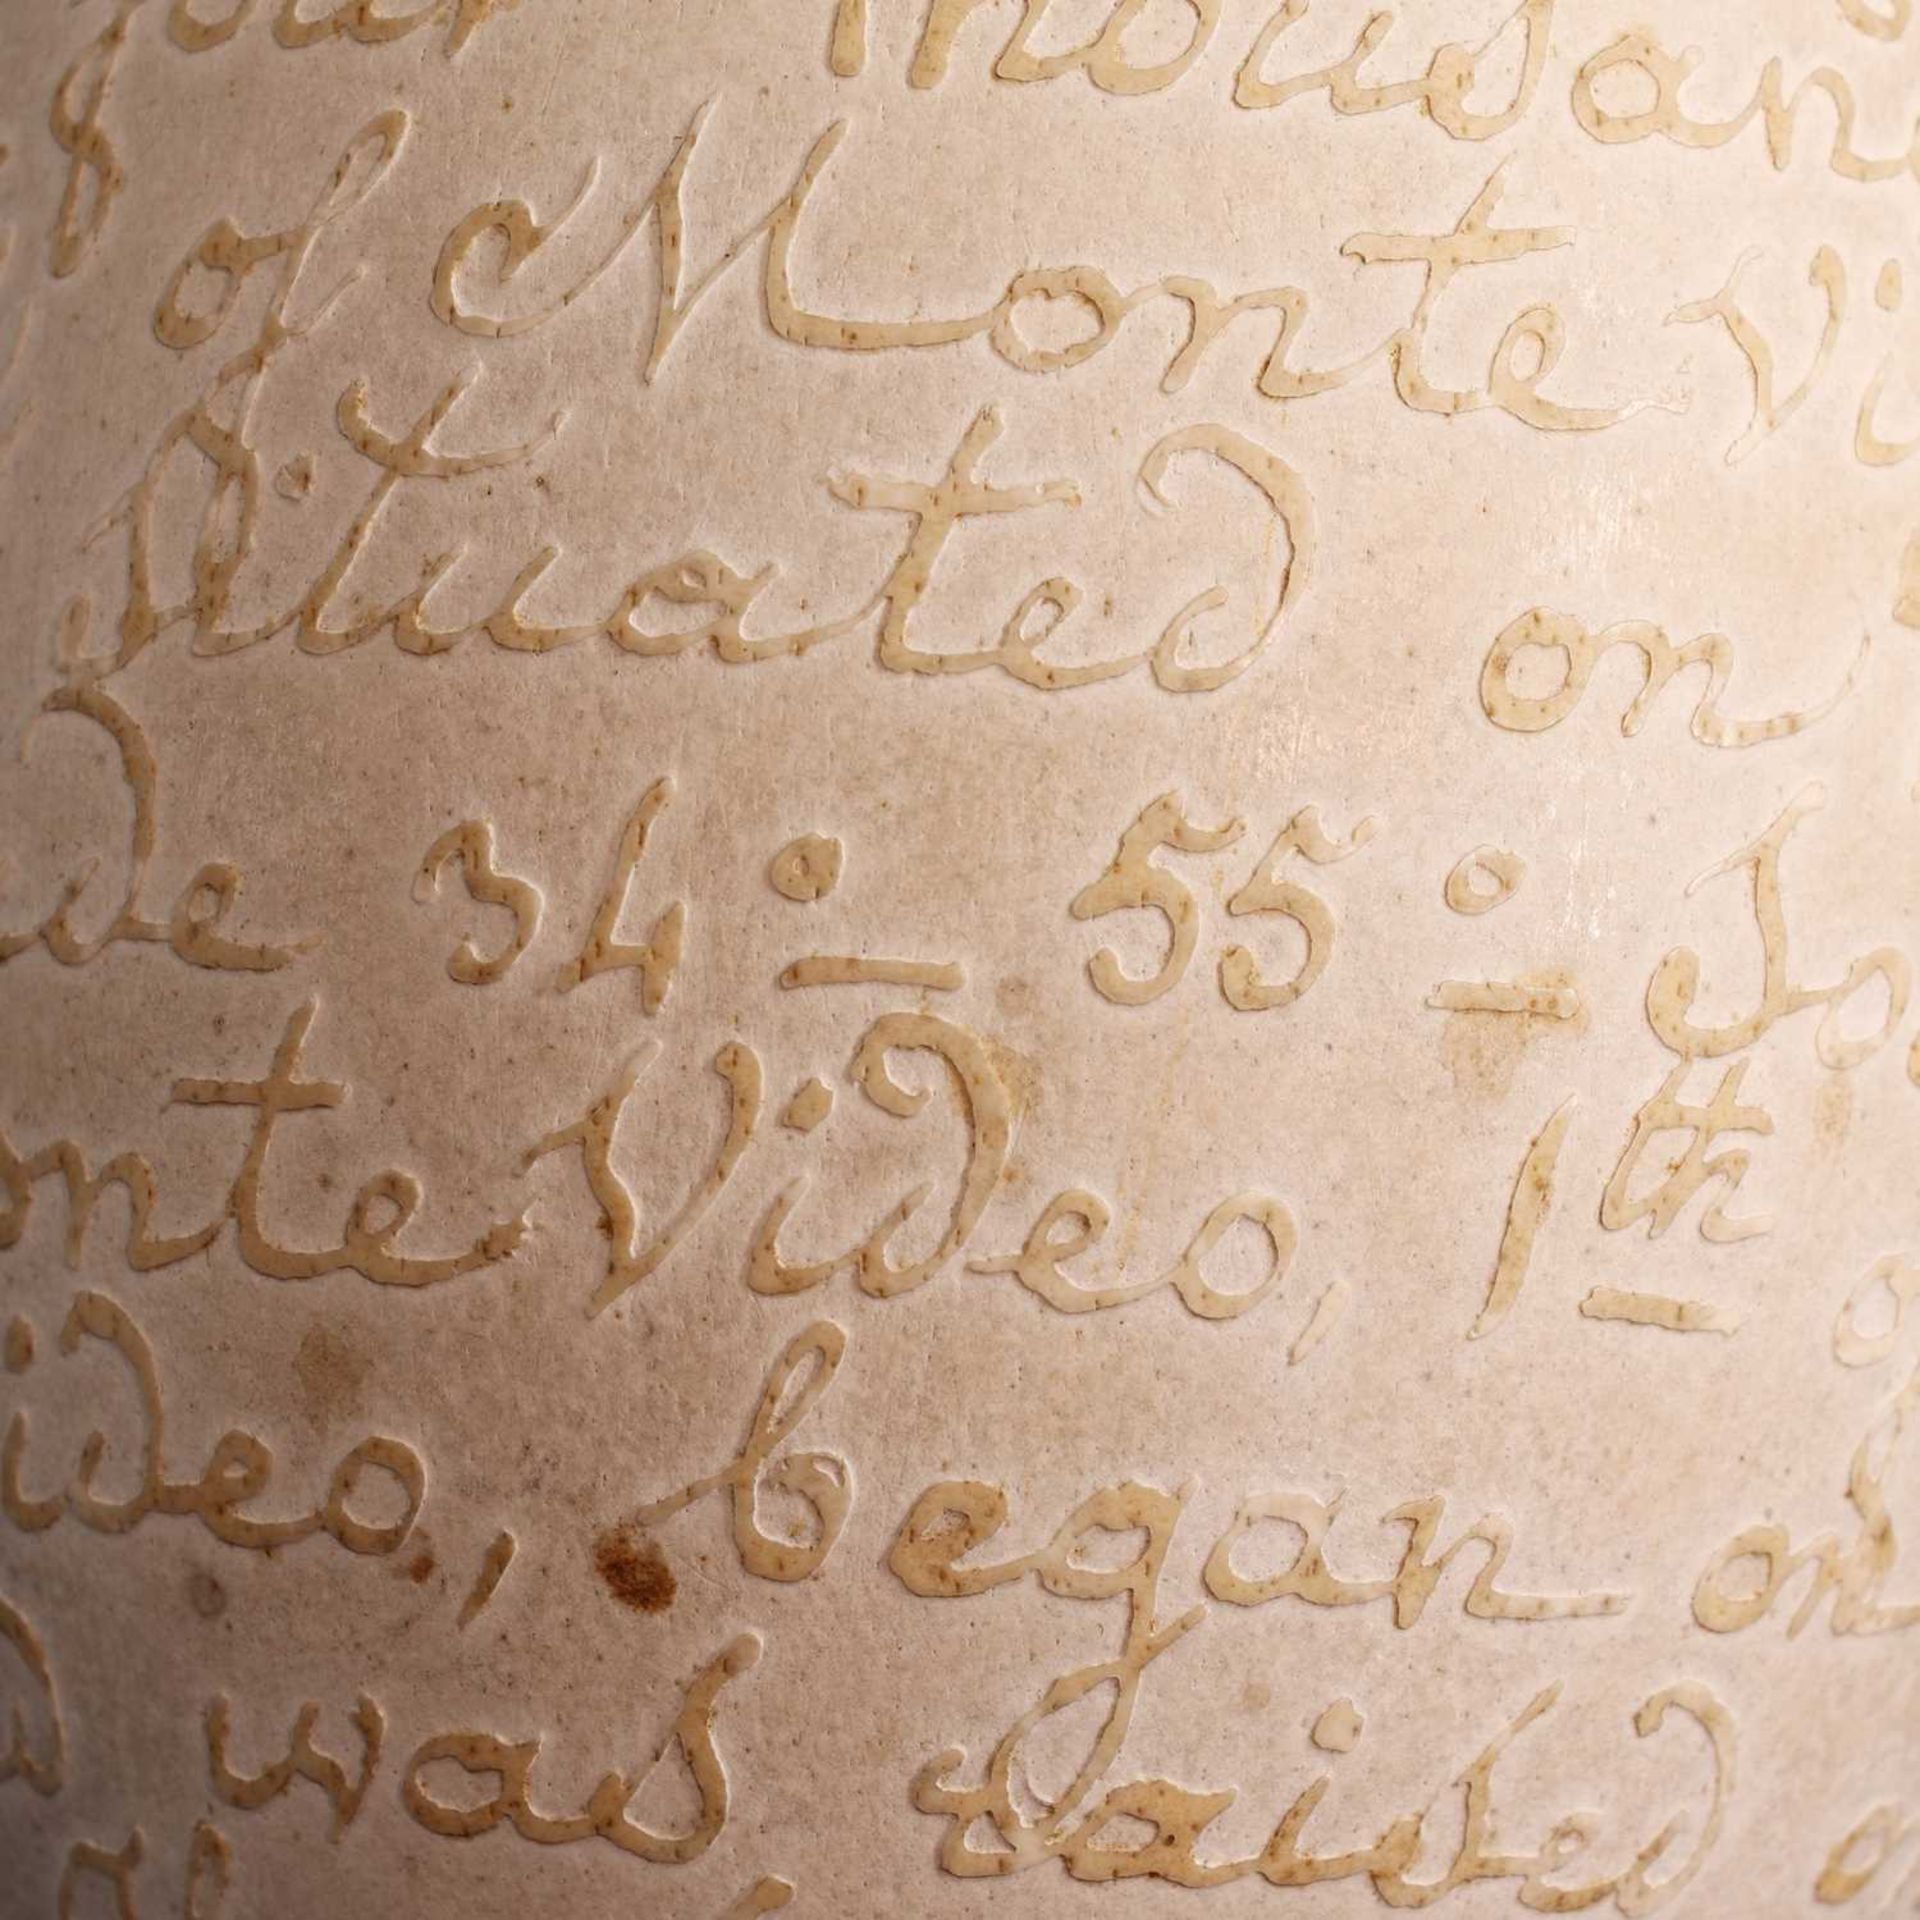 your Thousan
of Monte Vi
Situated on
ude 34° 55° So
onte Video, 1th o
ideo, began on
was raised